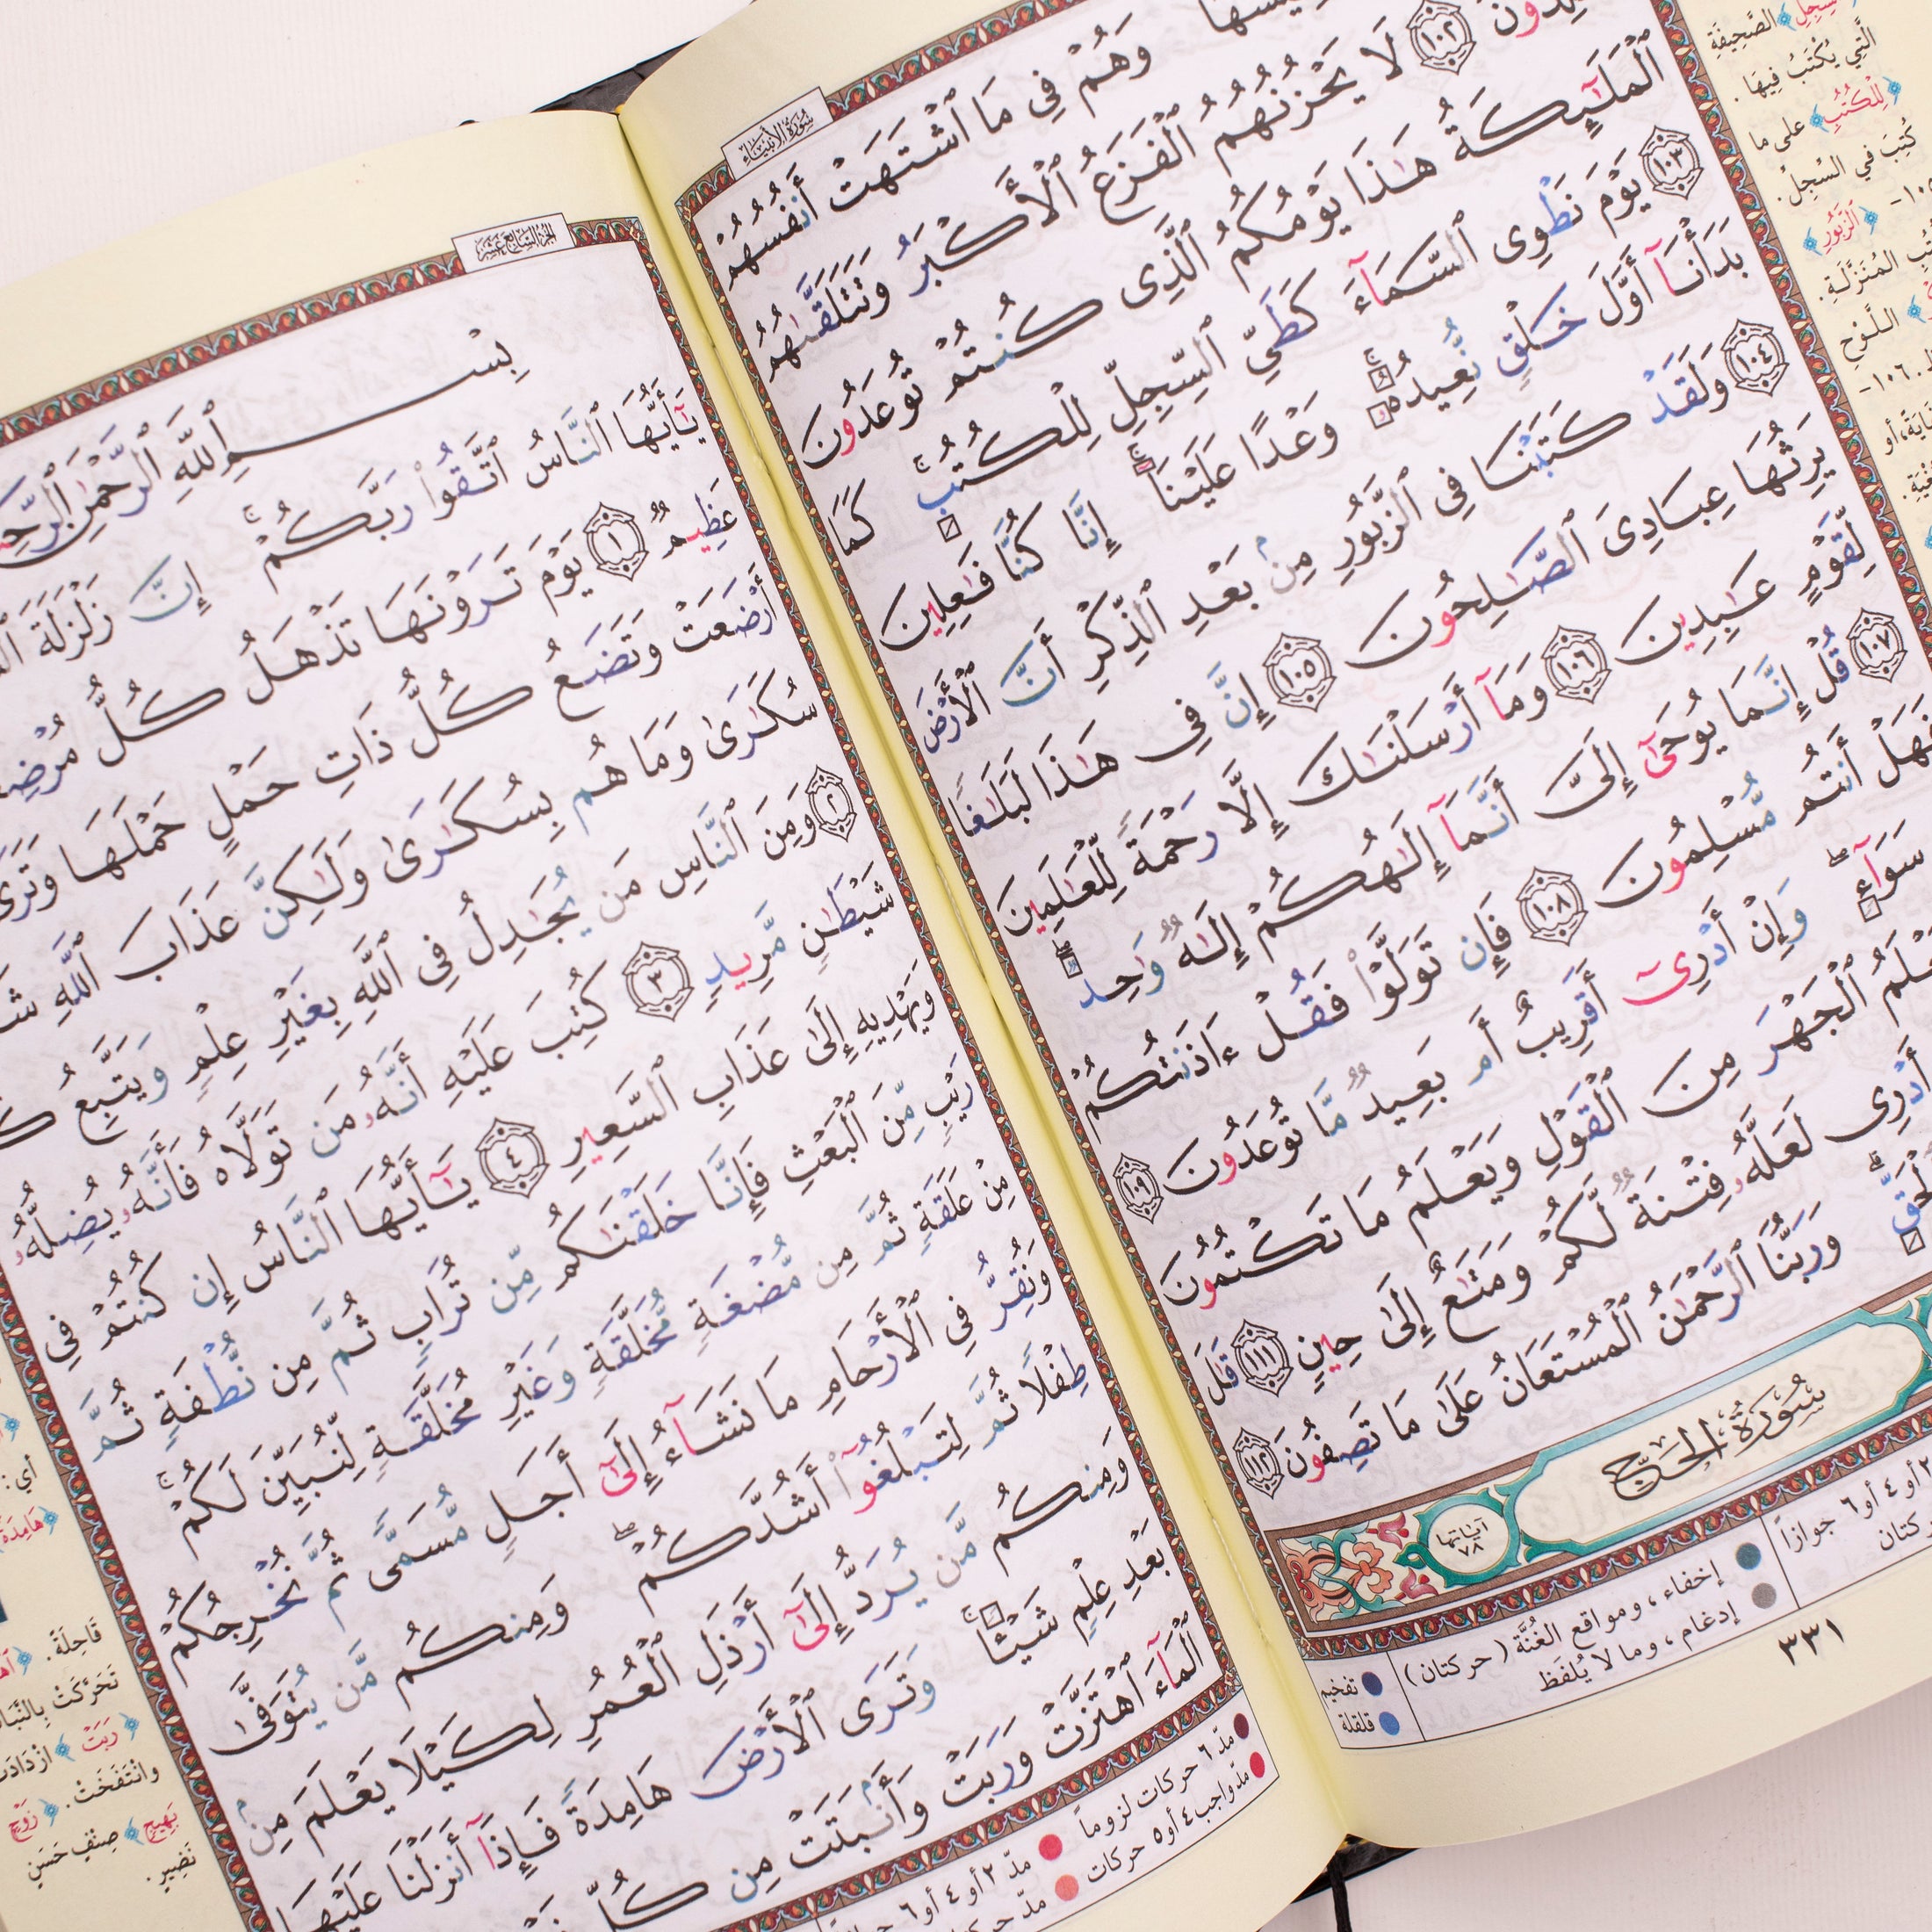 سُورَةُ الأَنبِيَاء
وَهُمْ فِى مَا ٱشْتَهَتْ أَنفُسُهُمْ
١٠٢ لَا يَحْزُنُهُمُ ٱلْفَزَعُ ٱلْأَكْبَرُ وَتَتَلَقَّىٰهُمُ
ٱلْمَلَٰٓئِكَةُ هَٰذَا يَوْمُكُمُ ٱلَّذِى كُنتُمْ تُوعَدُونَ
١٠٣ يَوْمَ نَطْوِى ٱلسَّمَآءَ كَطَىِّ ٱلسِّجِلِّ لِلْكُتُبِ ۚ كَمَا
بَدَأْنَآ أَوَّلَ خَلْقٍ نُّعِيدُهُۥ ۚ وَعْدًا عَلَيْنَآ ۚ إِنَّا كُنَّا فَٰعِلِينَ
١٠٤ وَلَقَدْ كَتَبْنَا فِى ٱلزَّبُورِ مِنۢ بَعْدِ ٱلذِّكْرِ أَنَّ ٱلْأَرْضَ
يَرِثُهَا عِبَادِىَ ٱلصَّٰلِحُونَ ١٠٥ إِنَّ فِى هَٰذَا لَبَلَٰغًا
لِّقَوْمٍ عَٰبِدِينَ ١٠٦ وَمَآ أَرْسَلْنَٰكَ إِلَّا رَحْمَةً لِّلْعَٰلَمِينَ
١٠٧ قُلْ إِنَّمَا يُوحَىٰٓ إِلَىَّ أَنَّمَآ إِلَٰهُكُمْ إِلَٰهٌ وَٰحِدٌ ۖ
فَهَلْ أَنتُم مُّسْلِمُونَ ١٠٨ فَإِن تَوَلَّوْا۟ فَقُلْ ءَاذَنتُكُمْ
سَوَآءٍ ۖ وَإِنْ أَدْرِىٓ أَقَرِيبٌ أَم بَعِيدٌ مَّا تُوعَدُونَ ١٠٩
ٱلْجَهْرَ مِنَ ٱلْقَوْلِ وَيَعْلَمُ مَا تَكْتُمُونَ
أَدْرِى لَعَلَّهُۥ فِتْنَةٌ لَّكُمْ وَمَتَٰعٌ إِلَىٰ حِينٍ ١١١ قَٰلَ
وَرَبُّنَا ٱلرَّحْمَٰنُ ٱلْمُسْتَعَانُ عَلَىٰ مَا تَصِفُونَ ١١٢
سُورَةُ الحَجِّ
آياتها ٧٨
إخفاء ، ومواقع الغُنَّة ( حركتان )
إدغام ، وما لا يُلفَظ
تفخيم
قلقلة
٣٣١
الصَّحِيفَةِ
الَّتِي يُكْتَبُ فِيهَا .
﴿لِلْكُتُبِ﴾ على ما
كُتِبَ في السِّجِلِّ .
﴿ٱلزَّبُورِ﴾
المُنَزَّلَةِ .
اللَّوْحِ
الجُزءُ السَّابِعَ عَشَرَ
بِسْمِ ٱللَّهِ ٱلرَّحْمَٰنِ
يَٰٓأَيُّهَا ٱلنَّاسُ ٱتَّقُوا۟ رَبَّكُمْ ۚ إِنَّ زَلْزَلَةَ
عَظِيمٌ ١ يَوْمَ تَرَوْنَهَا تَذْهَلُ كُلُّ
أَرْضَعَتْ وَتَضَعُ كُلُّ ذَاتِ حَمْلٍ حَمْلَهَا وَتَرَى
سُكَٰرَىٰ وَمَا هُم بِسُكَٰرَىٰ وَلَٰكِنَّ عَذَابَ ٱللَّهِ
٢ وَمِنَ ٱلنَّاسِ مَن يُجَٰدِلُ فِى ٱللَّهِ بِغَيْرِ عِلْمٍ وَيَتَّبِعُ
شَيْطَٰنٍ مَّرِيدٍ ٣ كُتِبَ عَلَيْهِ أَنَّهُۥ مَن تَوَلَّاهُ فَأَنَّهُۥ يُضِلُّهُۥ
وَيَهْدِيهِ إِلَىٰ عَذَابِ ٱلسَّعِيرِ ٤ يَٰٓأَيُّهَا ٱلنَّاسُ إِن كُنتُمْ فِى
رَيْبٍ مِّنَ ٱلْبَعْثِ فَإِنَّا خَلَقْنَٰكُم مِّن تُرَابٍ ثُمَّ مِن نُّطْفَةٍ ثُمَّ
مِنْ عَلَقَةٍ ثُمَّ مِن مُّضْغَةٍ مُّخَلَّقَةٍ وَغَيْرِ مُخَلَّقَةٍ لِّنُبَيِّنَ لَكُمْ ۚ
وَنُقِرُّ فِى ٱلْأَرْحَامِ مَا نَشَآءُ إِلَىٰٓ أَجَلٍ مُّسَمًّى ثُمَّ نُخْرِجُكُمْ
طِفْلًا ثُمَّ لِتَبْلُغُوٓا۟ أَشُدَّكُمْ ۖ وَمِنكُم مَّن يُتَوَفَّىٰ
وَمِنكُم مَّن يُرَدُّ إِلَىٰٓ أَرْذَلِ ٱلْعُمُرِ لِكَيْلَا يَعْلَمَ مِنۢ
بَعْدِ عِلْمٍ شَيْـًٔا ۚ وَتَرَى ٱلْأَرْضَ هَامِدَةً فَإِذَآ أَنزَلْنَا عَلَيْهَا
ٱلْمَآءَ ٱهْتَزَّتْ وَرَبَتْ وَأَنۢبَتَتْ مِن كُلِّ
مدّ ٦ حركات لزوماً
مدّ واجب ٤ أو ٥ حركات
مدّ ٢ أو ٤ أو ٦
قَاحِلَةً .
تَحَرَّكَتْ
﴿رَبَتْ﴾ ازْدَادَتْ
وانْتَفَخَتْ . ﴿زَوْجٍ
بَهِيجٍ﴾ صِنْفٍ حَسَنٍ
نَضِيرٍ .